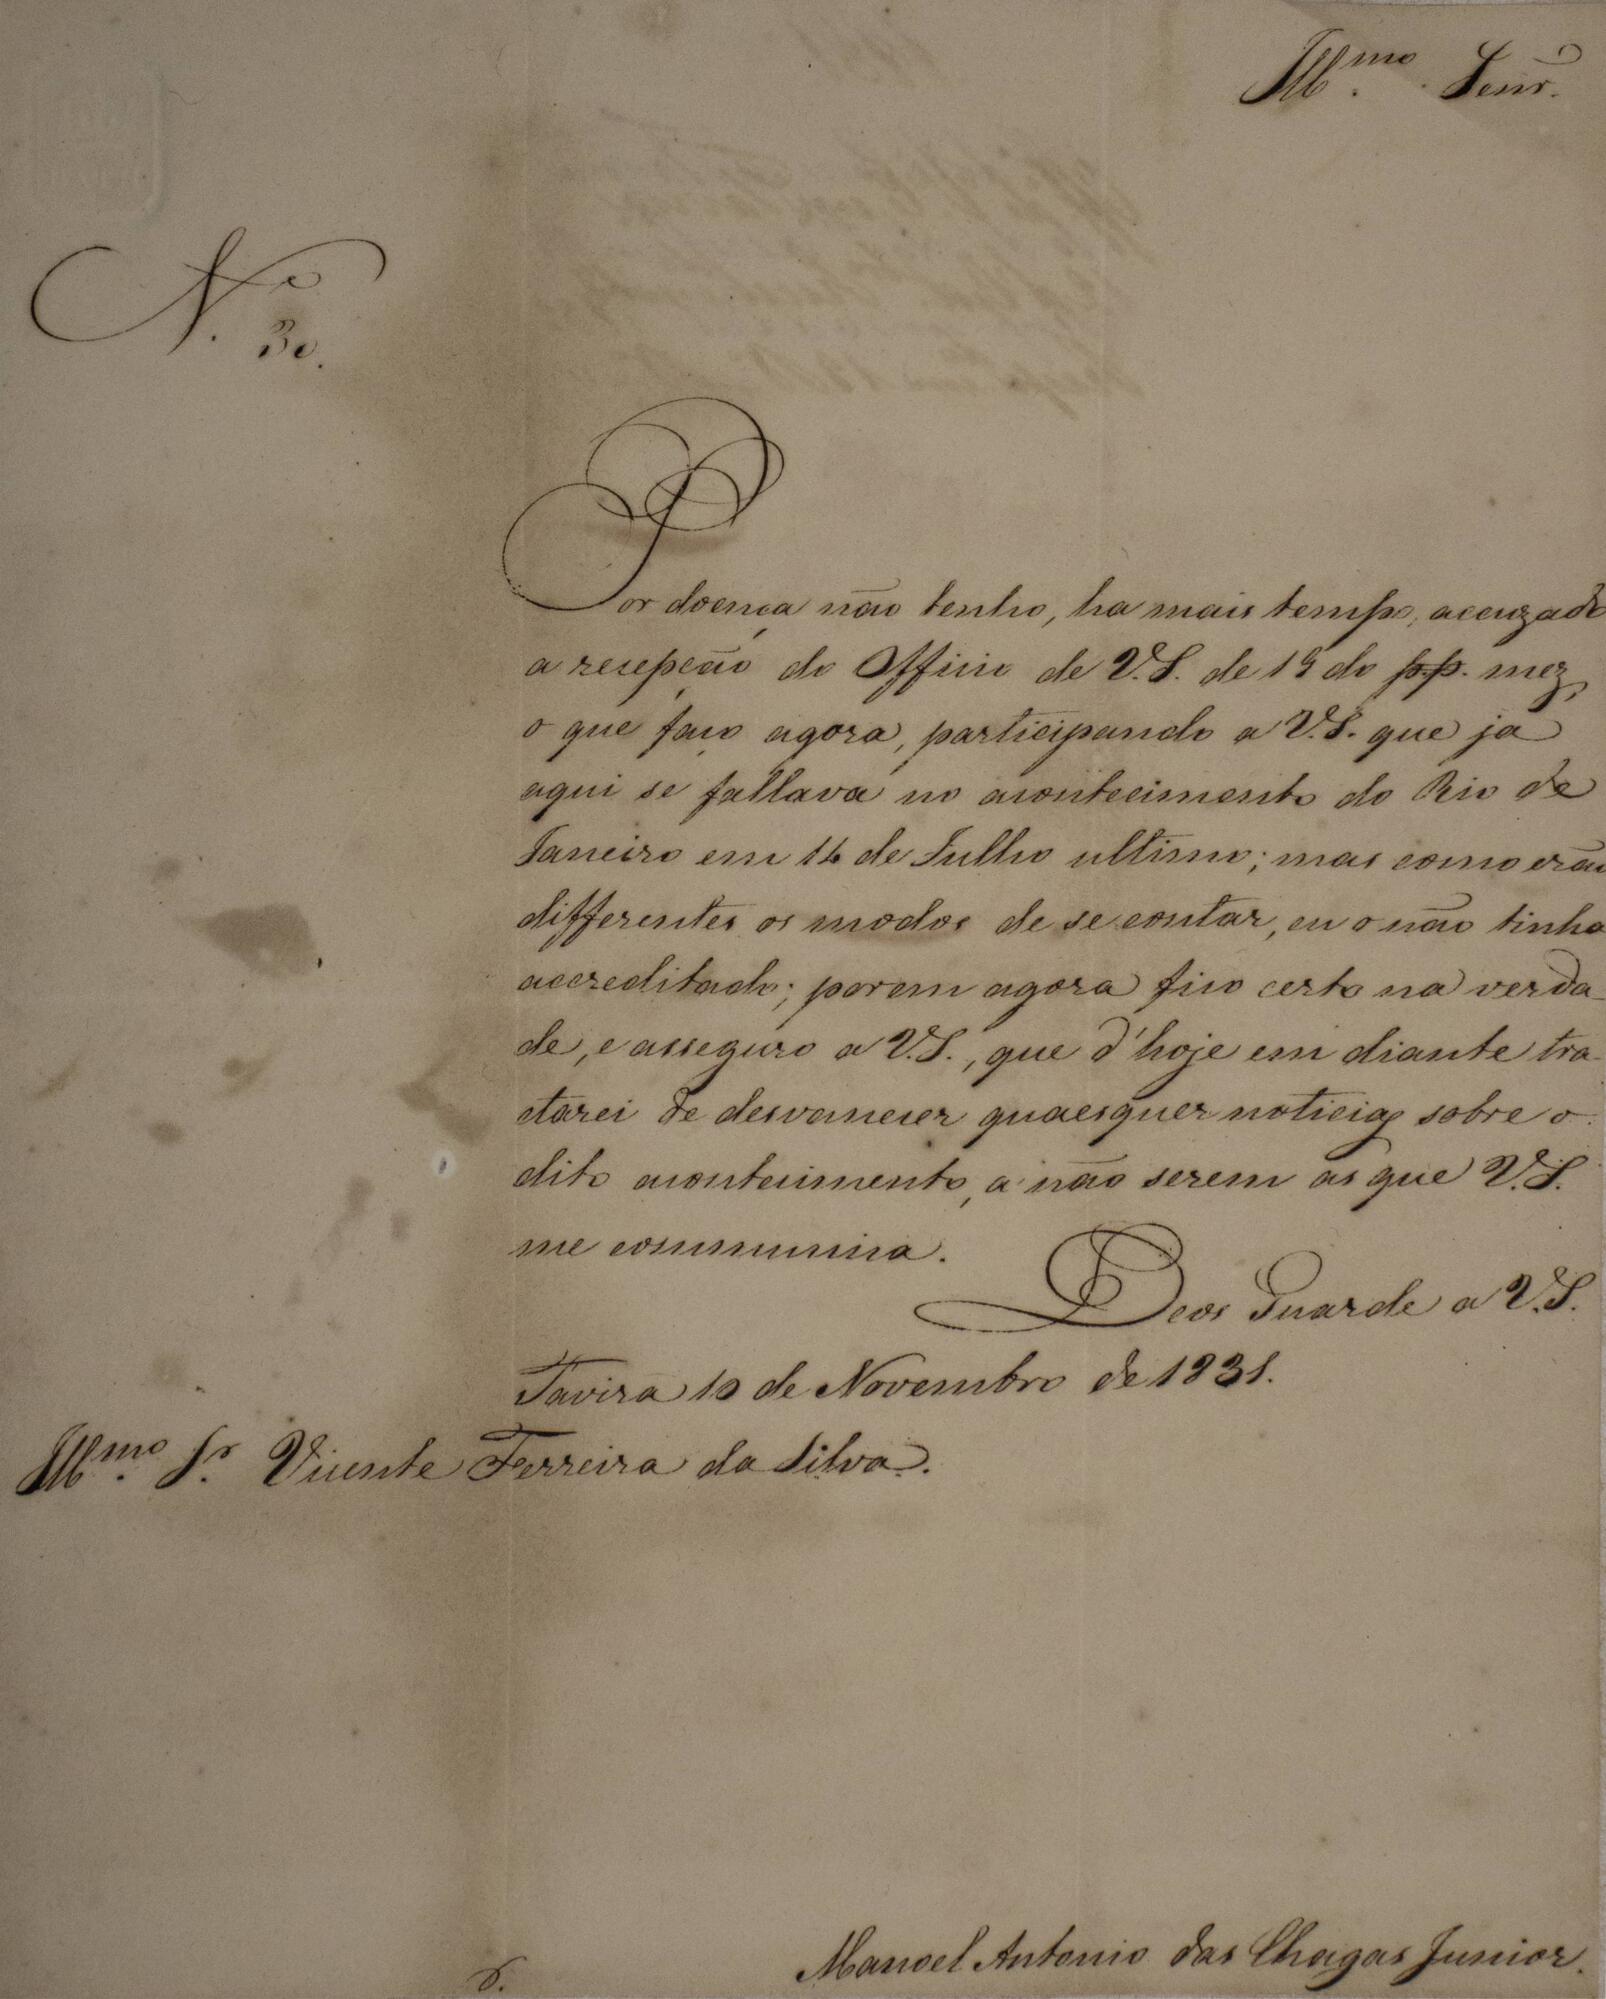 Ill.mo Senr.
N.o 30.
Por doença não tenho, ha mais tempo, accuzado
a recepção do Officio de V.S. de 19 do pp. mez,
o que faço agora, participando a V.S. que já
aqui se fallava no acontecimento do Rio de
Janeiro em 14 de Julho ultimo; mas como erão
differentes os modos de se contar, eu o não tinha
accreditado; porem agora fico certo na verda-
de, e asseguro a V.S., que d'hoje em diante tra-
ctarei de desvanecer quaesquer noticias sobre o
dito acontecimento, a não serem as que V.S.
me communica.
Deos Guarde a V.S.
Tavira 10 de Novembro de 1831.
Ill.mo Sr. Vicente Ferreira da Silva.
Manoel Antonio das Chagas Junior.